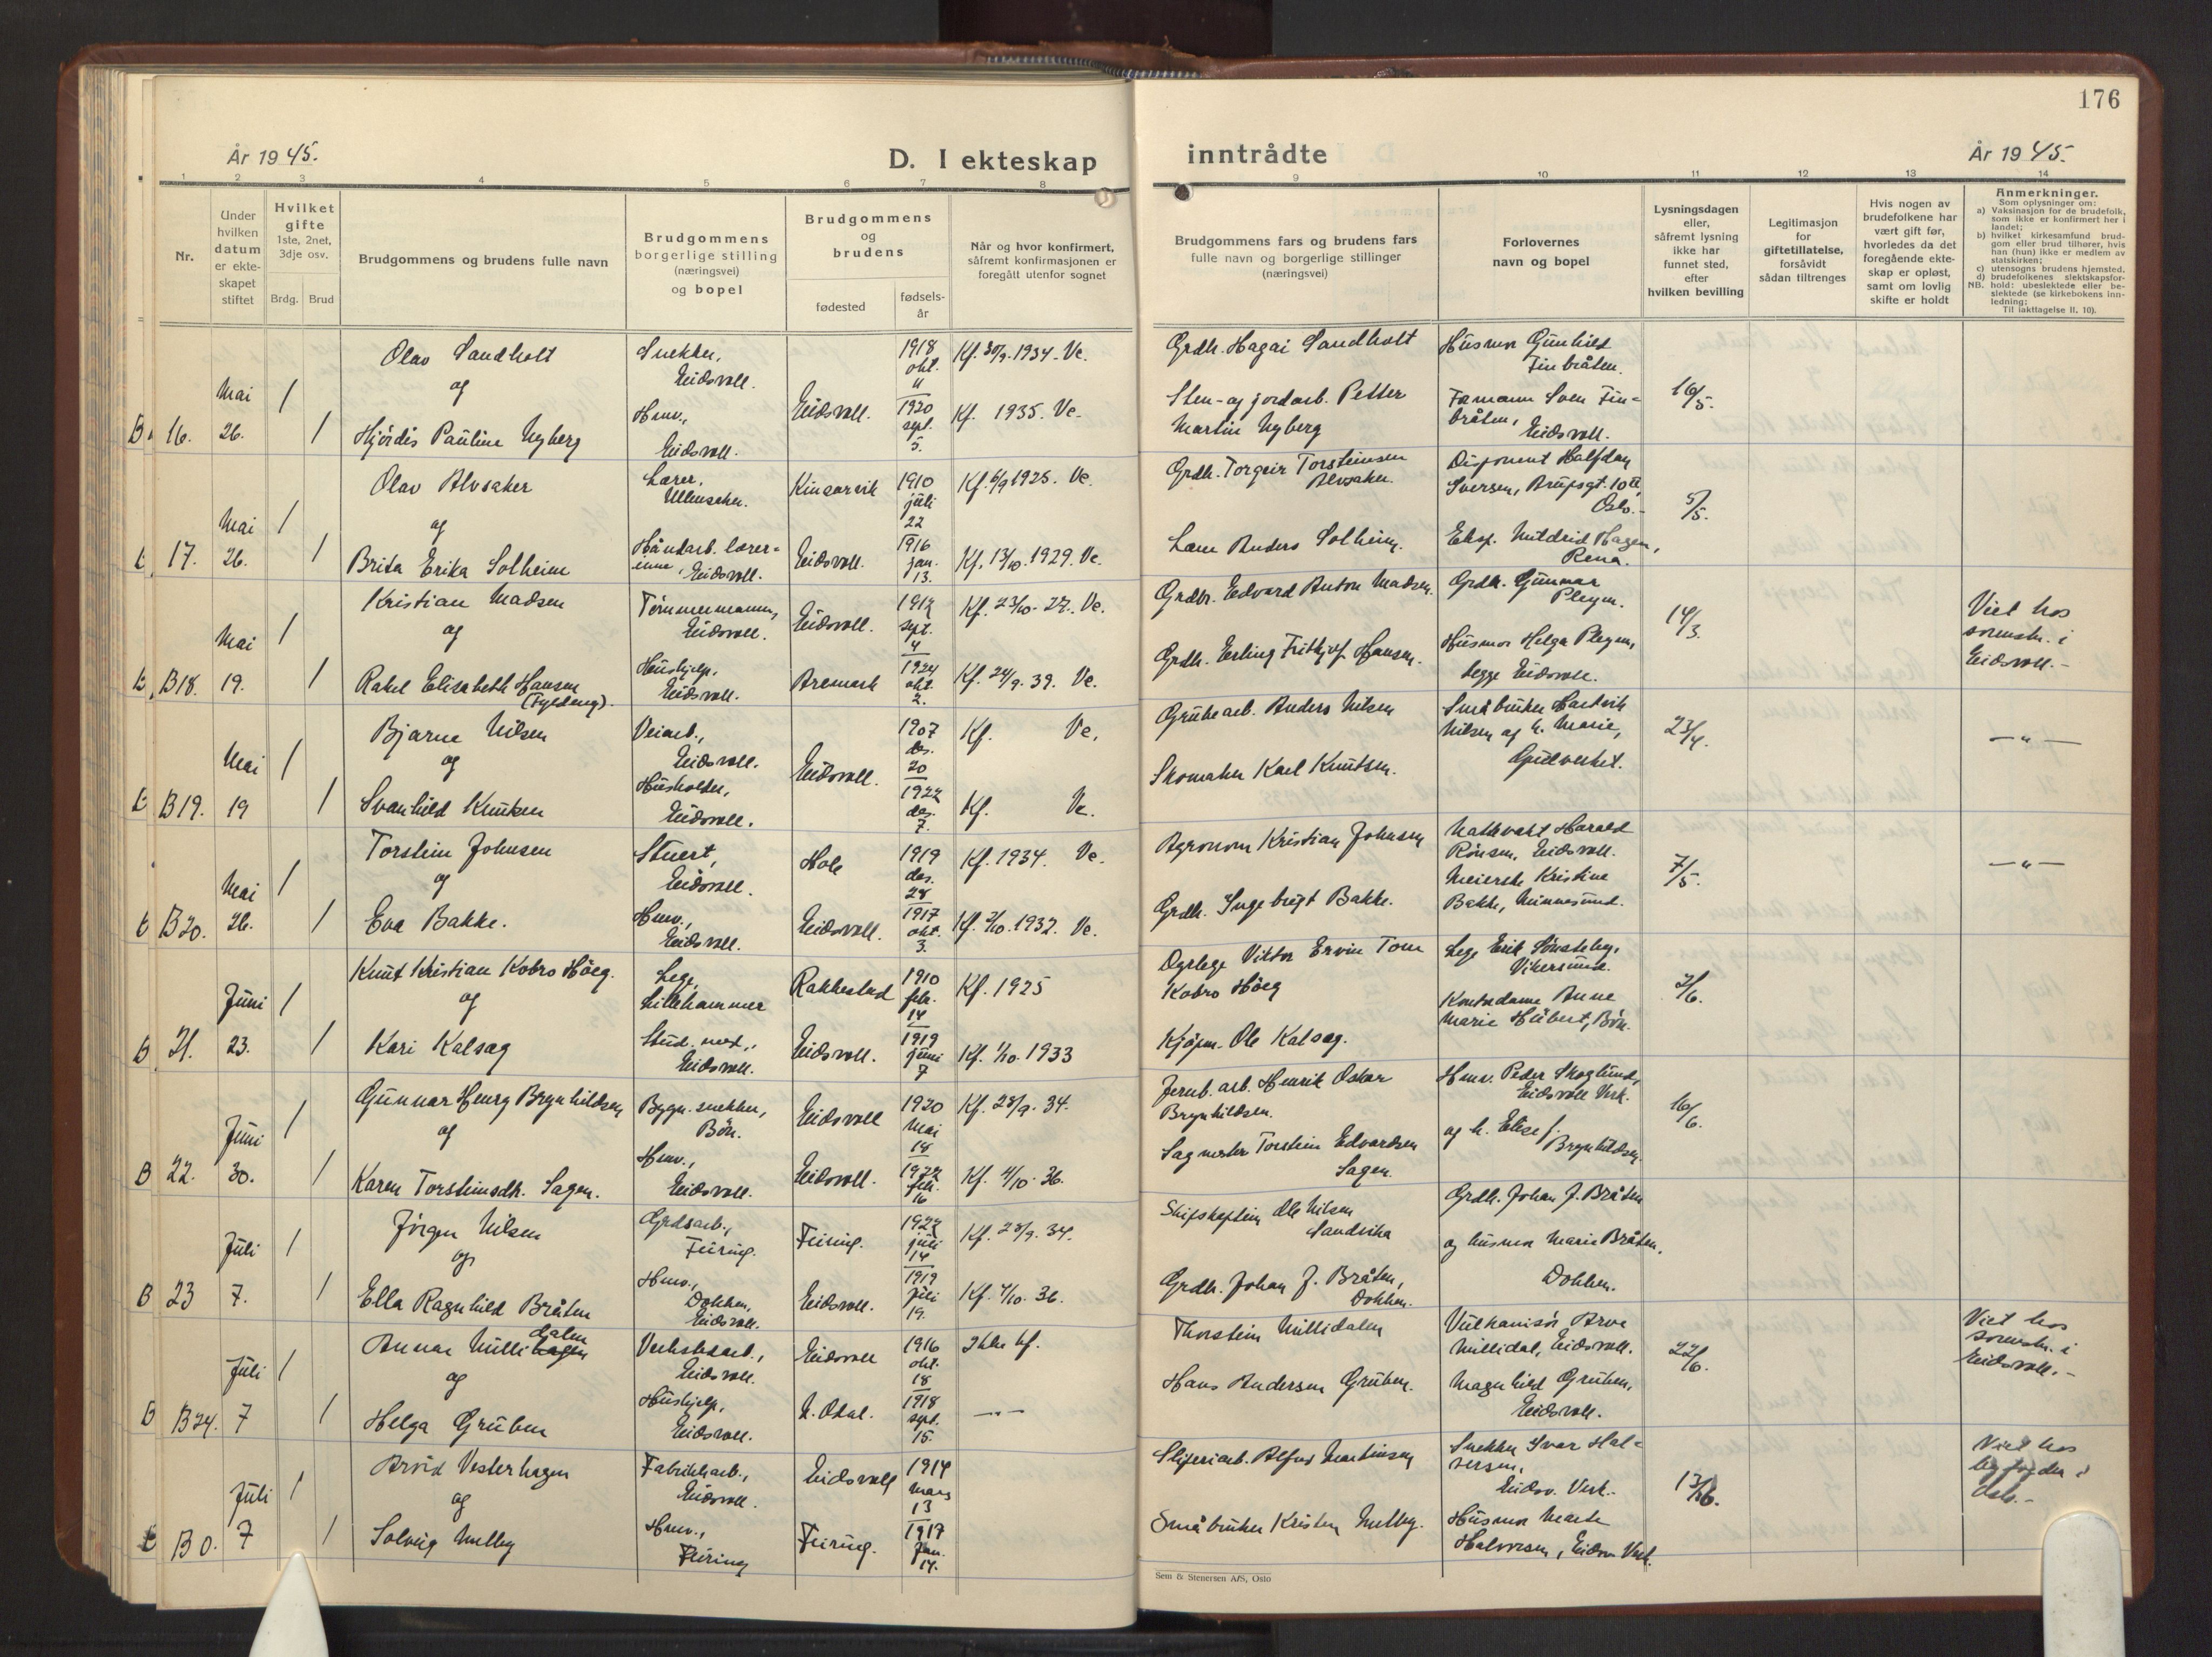 176
År 1945.
D. I ekteskap
inntrådte
År 1945.
1
2
3
4
5
6
7
8
9
10
11
12
13
14
Nr.
Under
hvilken
datum
er ekte-
skapet
stiftet
Hvilket
gifte
1ste, 2net,
3dje osv.
Brdg.
Brud
Brudgommens og brudens fulle navn
Brudgommens
borgerlige stilling
(næringsvei)
og bopel
Brudgommens
og
brudens
fødested
fødsels-
år
Når og hvor konfirmert,
såfremt konfirmasjonen er
foregått utenfor sognet
Brudgommens fars og brudens fars
fulle navn og borgerlige stillinger
(næringsvei)
Forlovernes
navn og bopel
Lysningsdagen
eller,
såfremt lysning
ikke har
funnet sted,
efter
hvilken bevilling
Legitimasjon
for
giftetillatelse,
forsåvidt
sådan tiltrenges
Hvis nogen av
brudefolkene har
vært gift før,
hvorledes da det
foregående ekte-
skap er opløst,
samt om lovlig
skifte er holdt
Anmerkninger.
Som oplysninger om:
a) Vaksinasjon for de brudefolk,
som ikke er konfirmert her i
landet;
b) hvilket kirkesamfund brud-
gom eller brud tilhører, hvis
han (hun) ikke er medlem av
statskirken;
c) utensogns brudens hjemsted.
d) brudefolkenes slektskapsfor-
hold: ubeslektede eller be-
slektede (se kirkebokens inn-
ledning;
NB.
Til iakttagelse II. 10).
B 16.
Mai
26.
1
1
Olav Sandholt
og
Hjördis Pauline Nyberg
Snekker,
Eidsvoll.
Hmv.,
Eidsvoll.
Eidsvoll.
1918
okt.
11
1920
sept.
5.
Kf. 30/9. 1934. Ve.
Kf. 1935. Ve.
Grdb. Hagai Sandholt
Sten- og jordarb. Petter
Martin Nyberg
Husmor Gunhild
Finbråten.
Formann Sven Fin-
bråten,
Eidsvoll.
16/5.
17.
Mai
26.
1
1
Olav Alvsaker
og
Brita Erika Solheim
Lærer,
Ullensaker.
Håndarb. lærer-
inne, Eidsvoll.
Kinsarvik
Eidsvoll.
1910
juli
22
1916
jan.
13.
Kf. 6/9 1925. Ve.
Kf. 13/10. 1929. Ve.
Grdb. Torgeir Torsteinsen
Alvsaker.
Lærer Anders Solheim.
Disponent Halfdan
Oslo.
Eksp. Mildrid Hagen,
Rena.
5/5.
B18.
Mai
19.
1
1
Kristian Madsen
og
Rakel Elisabeth Hansen
(Fyldeng).
Tømmermann,
Eidsvoll.
Hushjelp,
Eidsvoll.
Eidsvoll.
Aremark
1912
sept.
4
1924
okt.
2.
Kf. 23/10. 27. Ve.
Kf. 24/9. 39. Ve.
Grdbr. Edvard Anton Madsen.
Grdb. Erling Frithjof Hansen.
Grdb. Gunnar
Pleym.
Husmor Helga Pleym,
begge Eidsvoll.
14/3.
Viet hos
sorenskr. i
Eidsvoll.-
B19.
Mai
19
1
1
Bjarne Nilsen
og
Svanhild Knutsen
Veiarb.,
Eidsvoll.
Husholder,
Eidsvoll.
Eidsvoll.
1907
des.
20
1922
des.
7.
Kf. Ve.
Kf. Ve.
Grubearb. Anders Nilsen
Skomaker Karl Knutsen.
Småbruker Hartvik
Nilsen og h. Marie,
Gullverket.
23/4.
— " —
B20.
Mai
26.
1
1
Torstein Johnsen
og
Eva Bakke.
Stuert,
Eidsvoll.
Hmv.,
Eidsvoll.
Hole
Eidsvoll.
1919
des.
28
1917
okt.
3.
Kf. 1934. Ve.
Kf. 2/10. 1932. Ve.
Agronom Kristian Johnsen
Grdb. Ingebrigt Bakke.
Nattvakt Harald
Rönsen, Eidsvoll.
Meierske Kristine
Bakke, Minnesund.
7/5.
— " —
B 21.
Juni
23.
1
1
Knut Kristian Kobro Höeg.
og
Kari Kalsæg
Lege,
Lillehammer
Stud. med.,
Eidsvoll.
Rakkestad
Eidsvoll.
1910
feb.
14
1919
juni
7
Kf. 1925
Kf. 1/10. 1933
Dyrlege Viktor Ervin Tom
Kobro Höeg
Kjöpm. Ole Kalsæg.
Lege Erik Sönsteby,
Vikersund.
Kontordame Anne
Marie Hubert, Bön.
2/6.
B 22.
Juni
30.
1
1
Gunnar Henry Brynhildsen
og
Karen Torsteinsdh. Sagen.
Bygn. snekker,
Bön.
Hmv.,
Eidsvoll.
Eidsvoll
Eidsvoll.
1920
Mai
14
1922
feb.
16
Kf. 28/9. 34.
Kf. 4/10. 36.
Jernb. arb. Henrik Oskar
Brynhildsen.
Sagmester Torstein Edvardsen
Sagen.
Hmv. Peder Skoglund,
Eidsvoll Verk.
og h. Elise f.
Brynhildsen.
16/6.
B 23
Juli
7.
1
1
Jörgen Nilsen
og
Ella Ragnhild Bråten
Grdsarb.,
Feiring.
Hmv.,
Dokken,
Eidsvoll.
Feiring.
Eidsvoll.
1922
juli
14
1919
juli
19.
Kf. 28/9. 34.
Kf. 4/10. 36.
Skipskaptein Ole Nilsen
Sandvika
Grdb. Johan J. Bråten,
Dokken.
Grdb. Johan J. Bråten
og husmor Marie Bråten,
Dokken.
B B24.
Juli
7
1
1
dalen
Annar Millihagen
og
Helga Gruben
Verkstedarb.,
Eidsvoll.
Hushjelp,
Eidsvoll.
Eidsvoll
N. Odal.
1916
okt.
18
1918
sept.
15.
Ikke kf.
— " —
Thorstein Millidalen
Hans Andersen Gruben.
Vulkanisör Arve
Millidal, Eidsvoll.
Magnhild Gruben,
Eidsvoll.
22/6.
Viet hos
sorenskr. i
Eidsvoll.-
B 0.
Juli
7
1
1
Arvid Vesterhagen
og
Solveig Melby
Fabrikkarb.,
Eidsvoll.
Hmv.,
Feiring
Eidsvoll
Feiring.
1914
Mars
13
1917
Jan.
14.
Sliperiarb. Alfred Martinsen
Småbruker Kristen Melby.
Snekker Ivar Hal-
vorsen,
Eidsv. Verk.
Husmor Marte
Halvorsen, Eidsv. Verk.
13/6.
Viet hos
byfogden i
Oslo.-
Sem & Stenersen A/S, Oslo